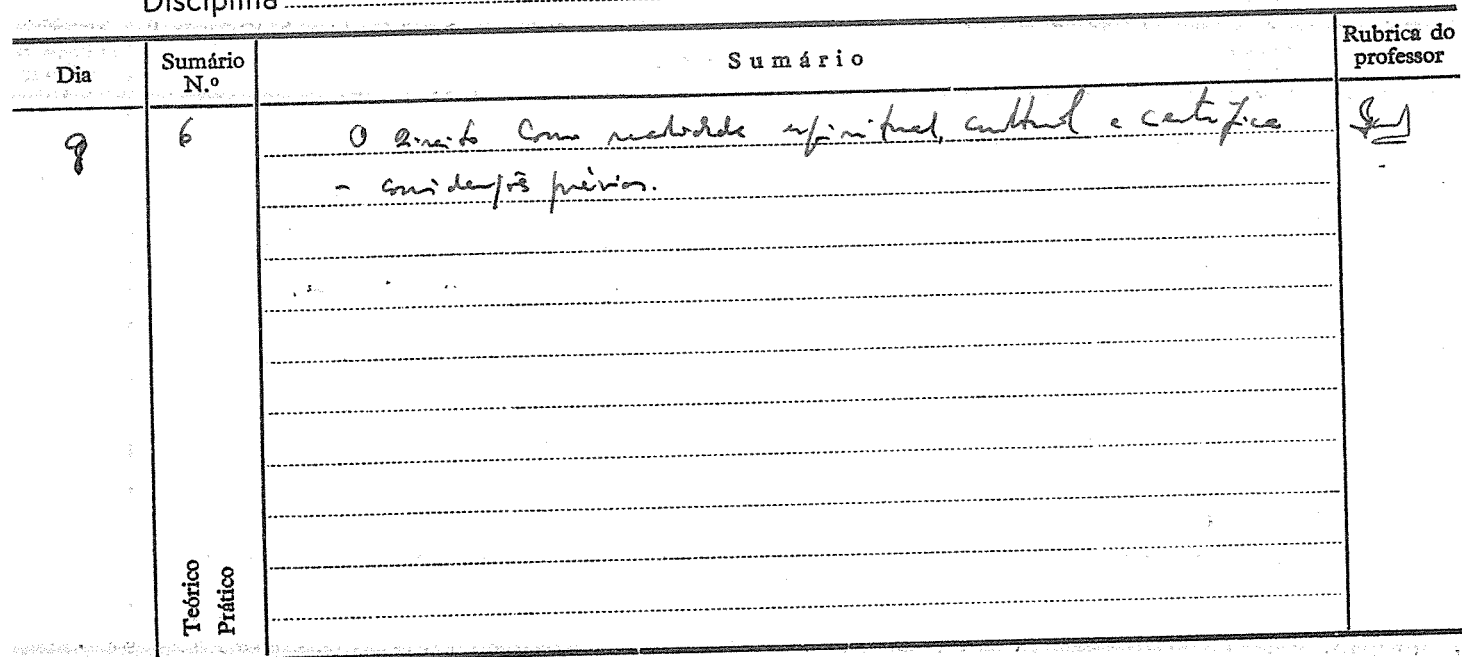 Disciplina
Dia
Sumário N.º
Sumário
Rubrica do professor
9
6
O Direito como realidade espiritual, cultural e científica
- considerações prévias.
Teórico
Prático